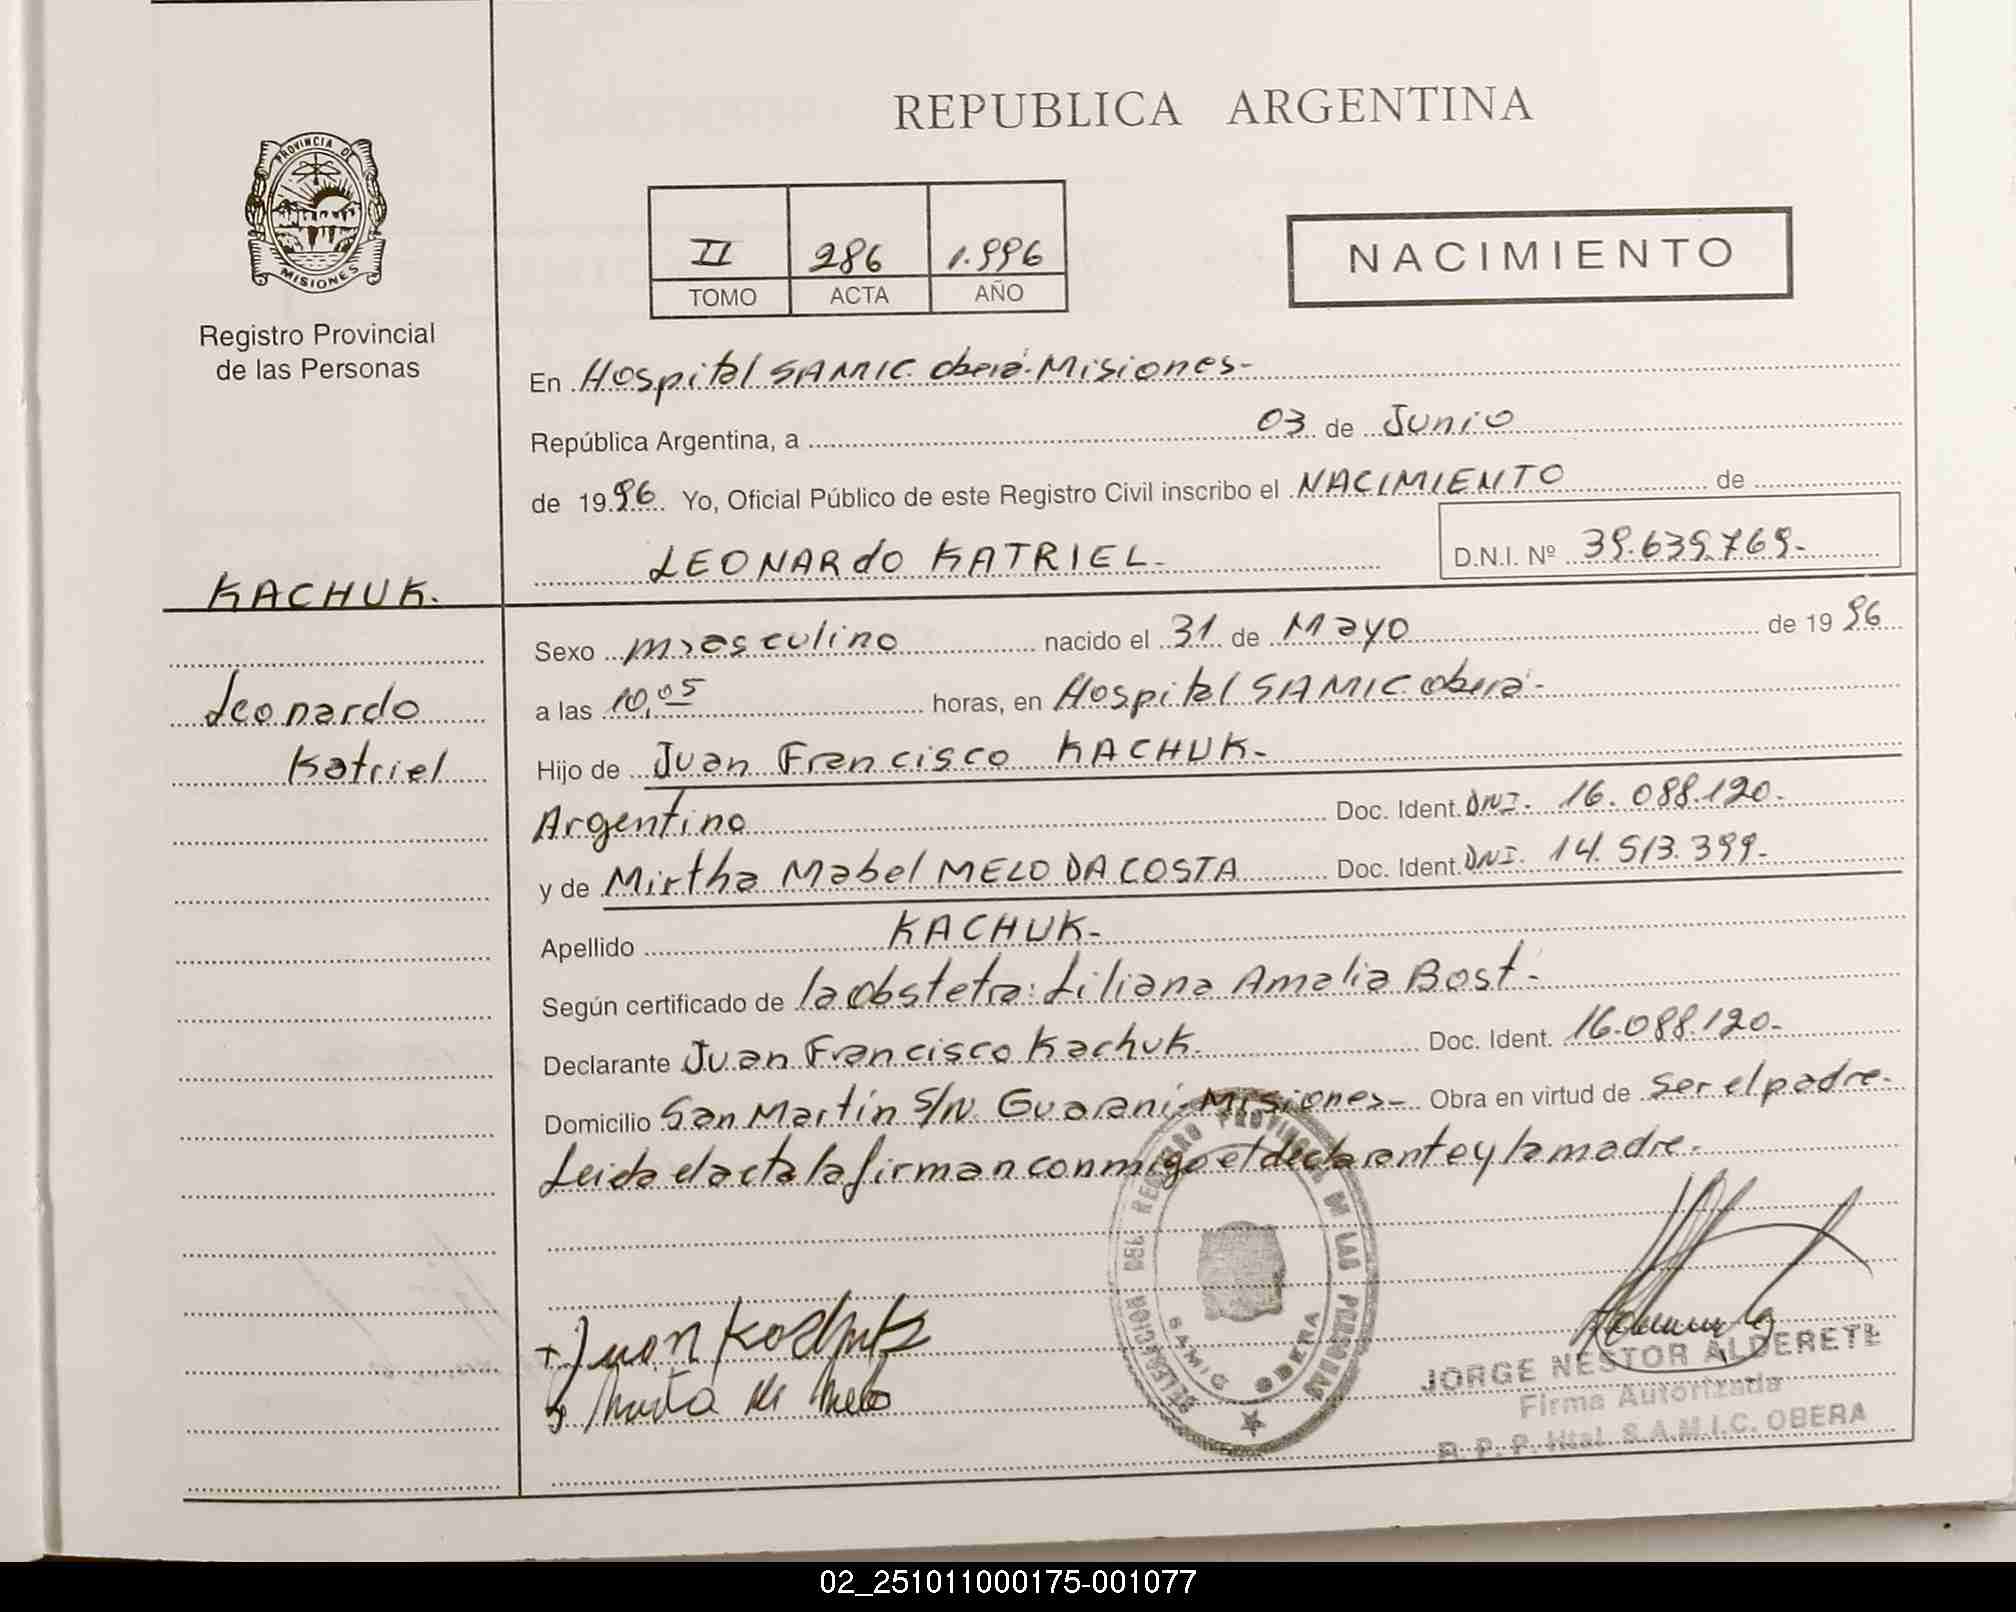 REPUBLICA ARGENTINA
PROVINCIA DE
MISIONES
Registro Provincial
de las Personas
II 286 1.996
TOMO ACTA AÑO
NACIMIENTO
En Hospital SAMIC Oberá-Misiones-
República Argentina, a 03 de Junio
de 1996 Yo, Oficial Público de este Registro Civil inscribo el NACIMIENTO de
LEONARDO KATRIEL- D.N.I. Nº 39.639.769-
KACHUK.
Leonardo
Katriel
Sexo masculino nacido el 31 de Mayo de 1996
a las 10,05 horas, en Hospital SAMIC Oberá-
Hijo de Juan Francisco KACHUK-
Argentino Doc. Ident. DNI. 16.088.120-
y de Mirtha Mabel MELO DA COSTA Doc. Ident. DNI. 14.513.399-
Apellido KACHUK-
Según certificado de la obstetra: Liliana Amalia Bost-
Declarante Juan Francisco Kachuk. Doc. Ident. 16.088.120-
Domicilio San Martín S/N. Guaraní-Misiones- Obra en virtud de ser el padre-
Leida el acta la firman conmigo el declarante y la madre-
DELEGACION DEL REGISTRO PROVINCIAL DE LAS PERSONAS
SAMIC OBERA
+ Juan Kachuk
JORGE NESTOR ALDERETE
Firma Autorizada
R. P. P. Htal. S.A.M.I.C. OBERA
02_251011000175-001077